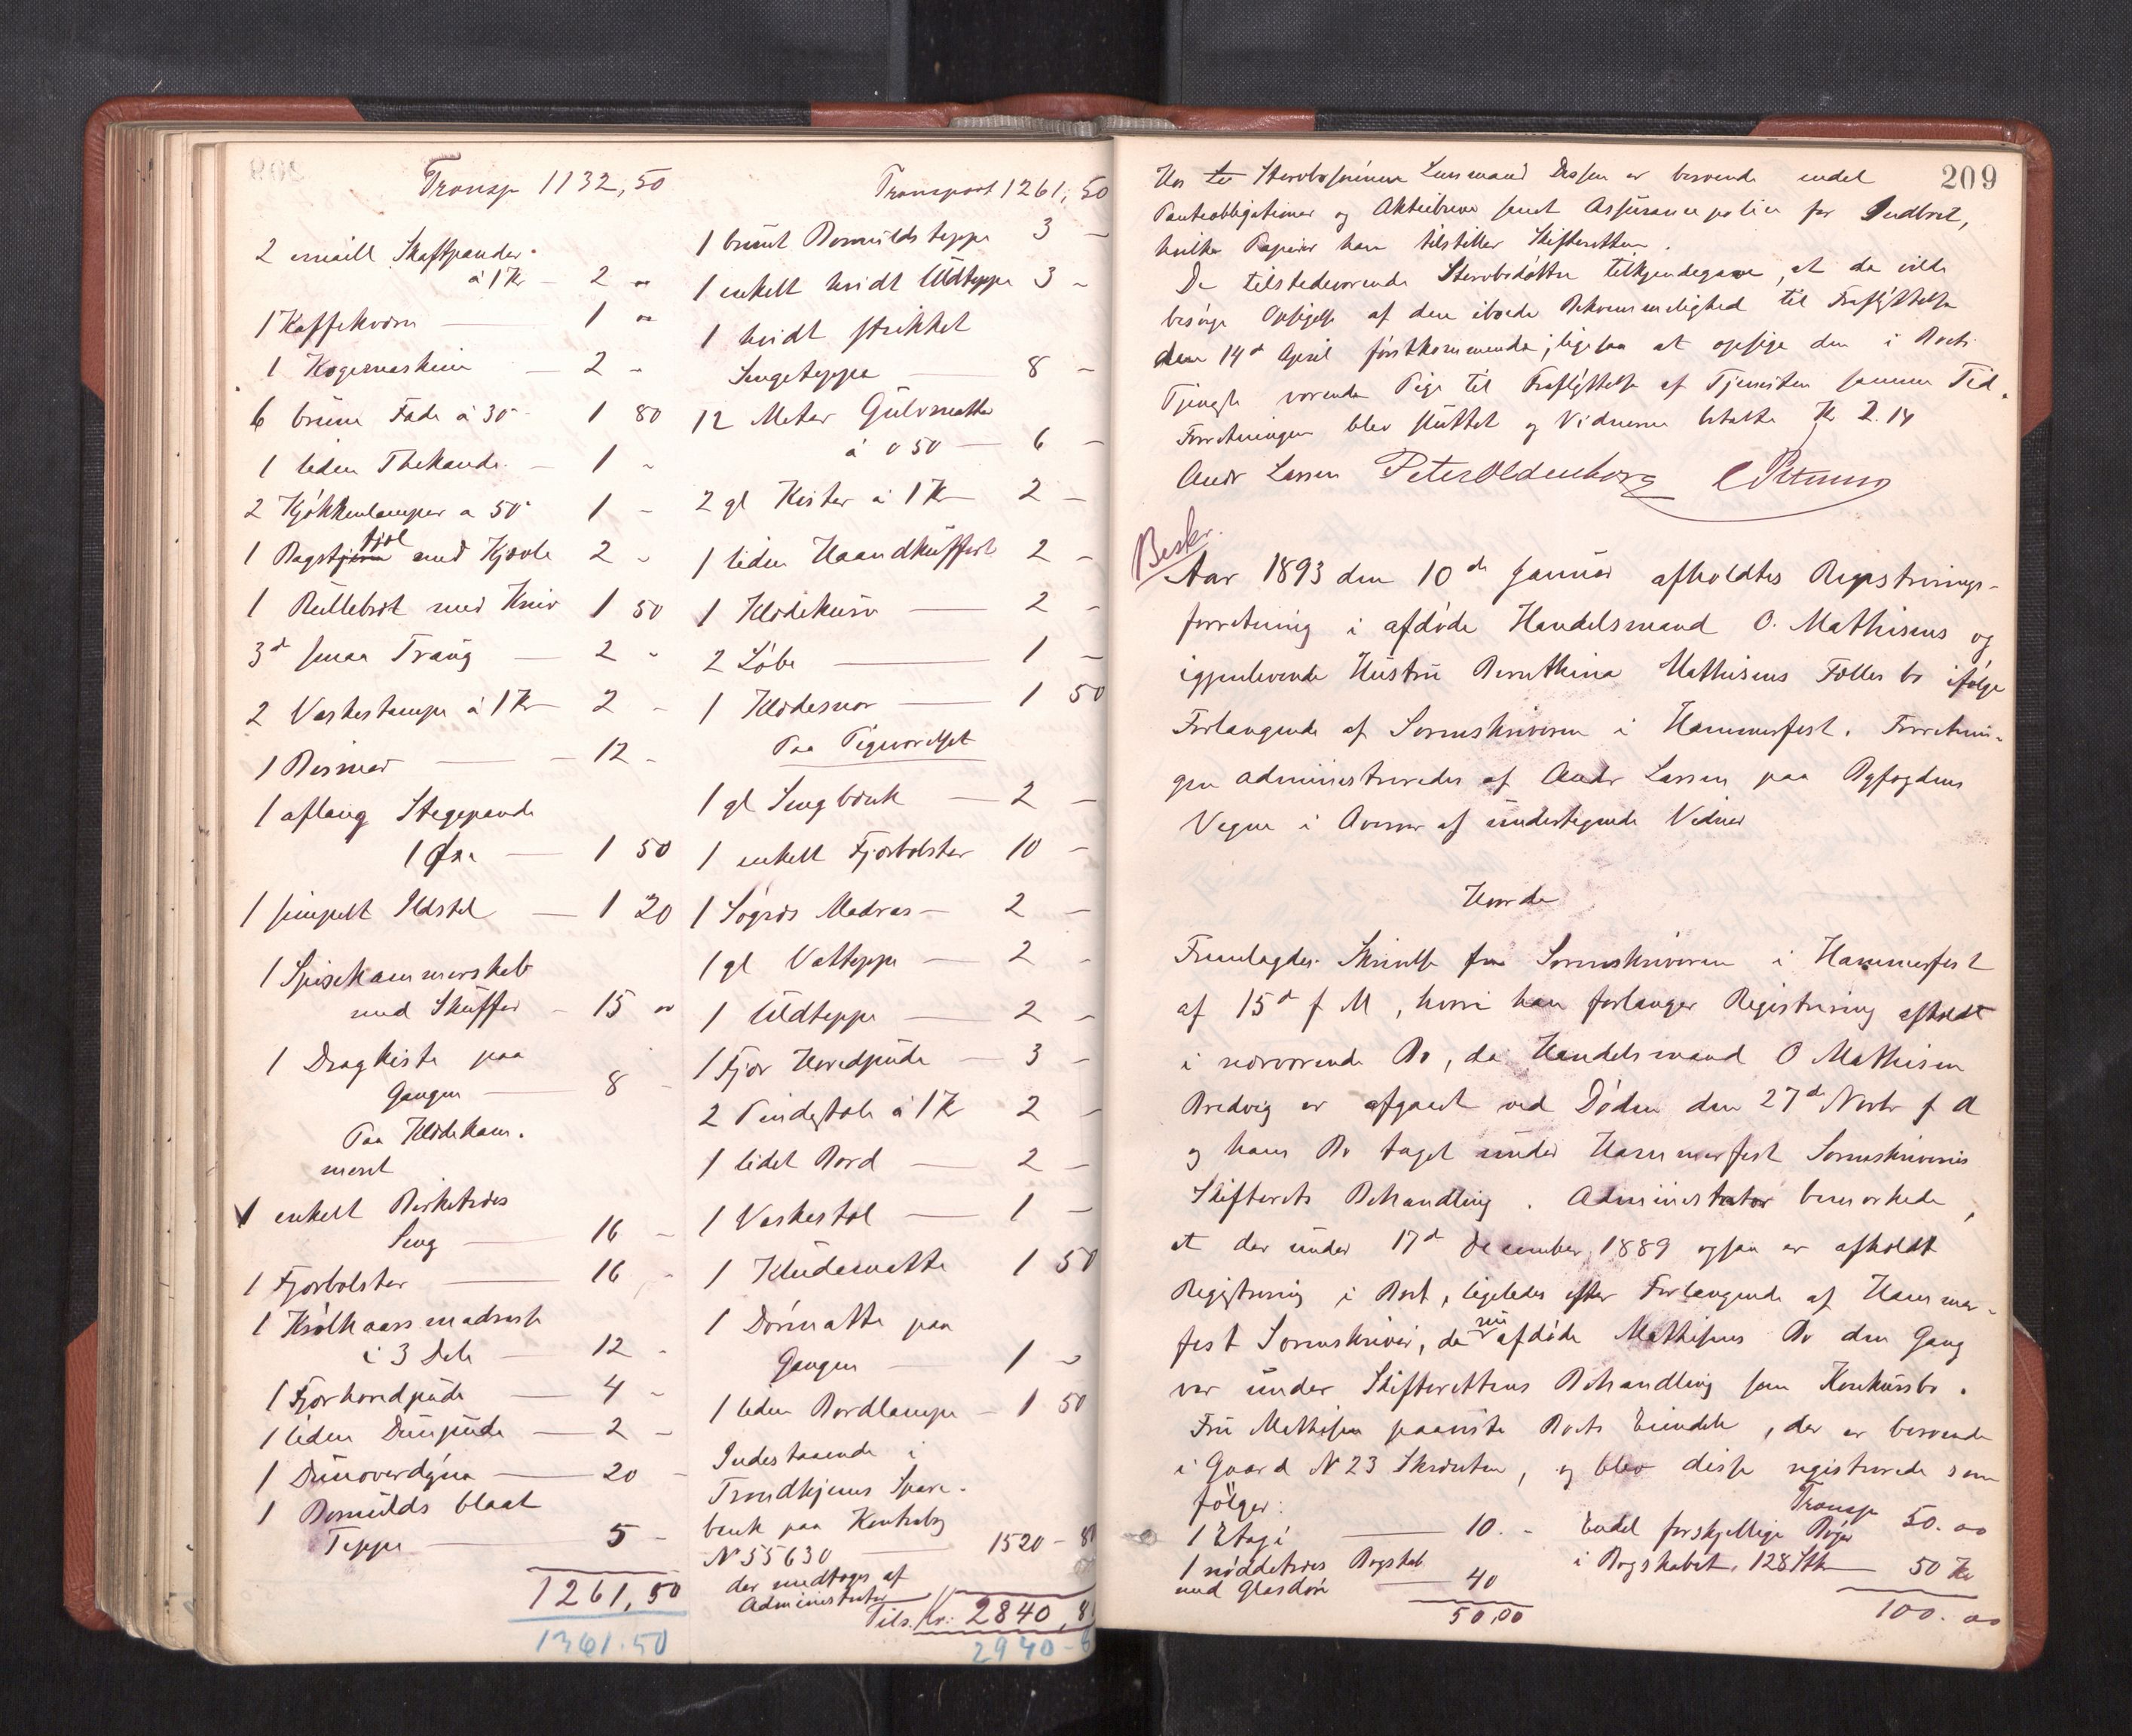 Transp 1132,50
2 emaill Skaftpander
à 1 Kr — 2 "
1 Kaffekværn — 1 "
1 Kogemaskin — 2 "
6 brune Fade à 30 1 80
1 liden Thekande — 1 "
2 Kjøkkenlamper a 50 1 "
1 Bagstfjøl med Kjevle 2 "
1 Rullebræt med Kniv 1 50
3 smaa Traug — 2 "
2 Vaskestampe à 1 Kr 2 "
1 Bismer — 12 "
1 aflang Stegepande
1 Øse — 1 50
1 simpelt Ildstel — 1 20
1 Spisekammerskab
med Skuffer — 15 "
1 Dragkiste paa
Gangen — 8 "
Paa Klædekam-
meret
1 enkelt Birketræes
Seng — 16 "
1 Fjærbolster — 16 "
1 Krølhaarsmadrasse
i 3 Dele — 12 "
1 Fjærhovedpude — 4 "
1 liden Dunpude — 2 "
1 Dunoverdyne — 20 "
1 Bomulds blaat
Teppe — 5 "
1261,50
1361.50
Transport 1261,50
1 brunt Bomulds teppe 3 —
1 enkelt hvidt Uldteppe 3 —
1 hvidt strikket
Sengeteppe — 8 —
12 Meter Gulvmatte
à 0 50 — 6 —
2 gl Kister à 1 Kr 2 —
1 liden Haandkuffert 2 —
1 Klædekurv — 2 —
2 Løbe — 1 —
1 Klædesnor — 1 50
Paa Pigeværelset
1 gl Sengbænk — 2 —
1 enkelt Fjærbolster 10 —
1 Søgræs Madras — 2 —
1 gl Vatteppe — 2 —
1 Uldteppe — 2 —
1 Fjær Hovedpude — 3 —
2 Pindestole à 1 Kr 2 —
1 lidet Bord — 2 —
1 Vaskestol — 1 —
1 Kludematte 1 50
1 Dørmatte paa
Gangen — 1 "
1 liden Bordlampe — 1 50
Indestaaende i
Trondhjems Spare-
bank paa Kontrabog
N 55630 — 1520 - 8
der medtoges af
Administrator
Tils. Kr: 2840,8
2940 -
209
Hos Stervbosønnen Lensmand er beroende endel
Panteobligationer og Aktiebreve samt Assurancepolice for Indboet,
hvilke Papirer han tilstiller Skifteretten.
De tilstedeværende Stervbodøttre tilkjendegave, at de vilde
besørge Opsigelse af den iboede Bekvemmelighed til Fraflyttelse
den 14de April førstkommende; ligesaa at opsige den i Boets
Tjeneste værende Pige til Fraflyttelse af Tjenesten samme Tid.
Forretningen blev sluttet og Vidnerne betalte Kr 2.14
Andr Larsen Peter Oldenborg
Beskr.
Aar 1893 den 10de Januar afholdtes Registrerings-
forretning i afdøde Handelsmand O. Mathisens og
igjenlevende Hustru Mathisens Fælles bo ifølge
Forlangende af Sorenskriveren i Hammerfest. Forretnin-
gen administreredes af Andr Larsen paa Byfogdens
Vegne i Overvær af undertegnede Vidner
Hvorda
Fremlagdes Skrivelse fra Sorenskriveren i Hammerfest
af 15de f M, hvori han forlanger Registrering afholdt
i nærværende Bo, da Handelsmand O Mathisen
Bredvig er afgaaet ved Døden den 27de Novbr f A
og hans Bo taget under Hammerfest Sorenskriveries
Skifterets Behandling. Administrator bemærkede,
at der under 17de December 1889 ogsaa er afholdt
Registrering i Boet, ligeledes efter Forlangende af Hammer-
fest Sorenskriver, da nu afdøde Mathisens Bo den Gang
var under Skifterettens Behandling som Konkursbo.
Fru Mathisen paaviste Boets Eiendele, der er beroende
i Gaard N 23 , og blev disse registrerede som
følger:
1 Etagé — 10. -
1 nøddetræes Bogskab
med Glasdøre — 40
50,00
Transp 50.00
Endel forskjellige Bøger
i Bogskabet, 128 Stk — 50 Kr
100.00